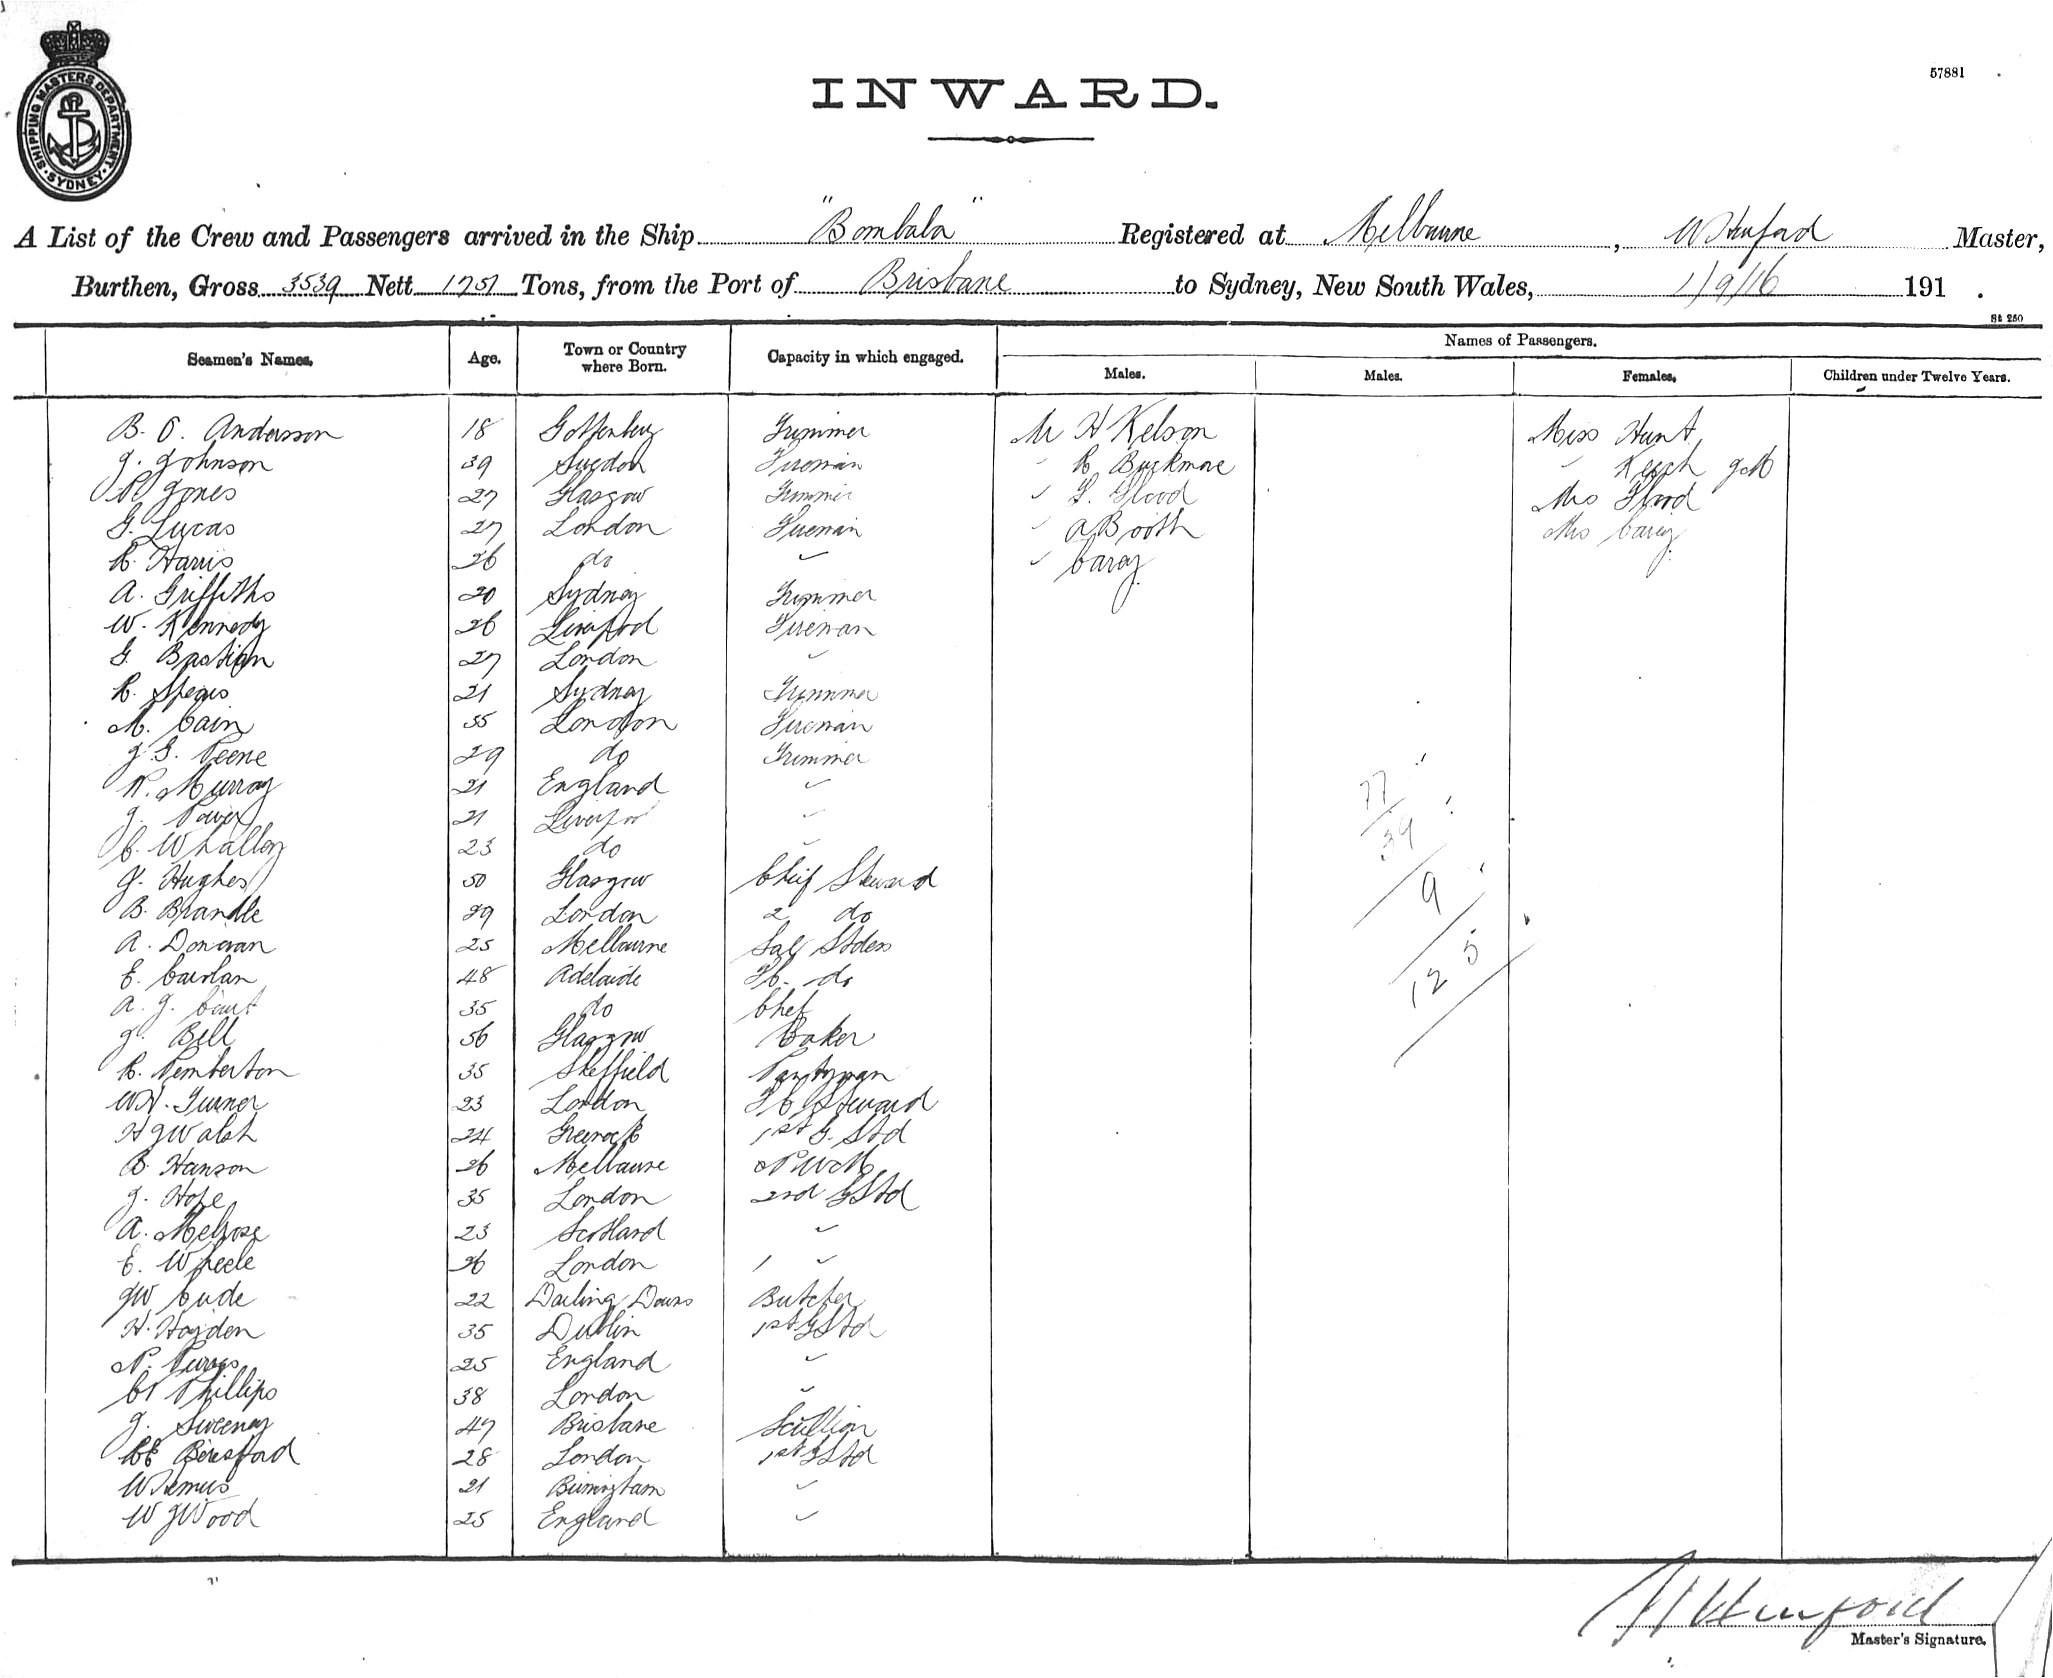 SHIPPING MASTERS DEPARTMENT. SYDNEY.
57881
INWARD.
A List of the Crew and Passengers arrived in the Ship "Bombala" Registered at Melbourne, W Hurford Master,
Burthen, Gross 3539 Nett Tons, from the Port of Brisbane to Sydney, New South Wales, 1/9/16 191 .
St 250
Seamen's Names. Age. Town or Country where Born. Capacity in which engaged. Names of Passengers.
Males. Males. Females. Children under Twelve Years.
B. O. Andersson 18 Gottenberg Trimmer Mr H Kelson Miss Hunt
J. Johnson 39 Sweden Fireman " R Buckmore " G M
R Jones 27 Glasgow Trimmer " F. Flood Mrs Flood
G. Lucas 27 London Fireman " A Booth Mrs Carey
R. Harris 26 do " " Carey
A. Griffiths 20 Sydney Trimmer
W. Kennedy 26 Liverpool Fireman
G. Bastian 27 London "
R. 21 Sydney Trimmer
M. Cain 35 London Fireman
J. G. Peene 29 do Trimmer
P. Murray 21 England "
J. Power 21 Liverpoo "
C. Whalley 23 do "
J. Hughes 50 Glasgow Chief Steward
B. Brandle 29 London 2 do
A. Donovan 25 Melbourne Sal Stdess
E. 48 Adelaide F C. do
A. J. 35 do Chef
J. Bell 56 Glasgow Baker
R. Pemberton 35 Sheffield Pantryman
W H. Turner 23 London F C Steward
H J Walsh 24 Greenock 1st G. Std
B. Hanson 26 Melbourne
J. Hope 35 London 2nd G Std
A. Melrose 23 Scotland "
E. Wheele 26 London 1 "
J W Cude 22 Darling Downs Butcher
H. Hayden 35 Dublin 1st G Std
N. Purves 25 England "
C T Phillips 38 London "
J. Sweeney 47 Brisbane Scullion
C E Beresford 28 London 1st G Std
W 21 Birmingham "
W J Wood 25 England "
77
39
9
125
W Hurford
Master's Signature.